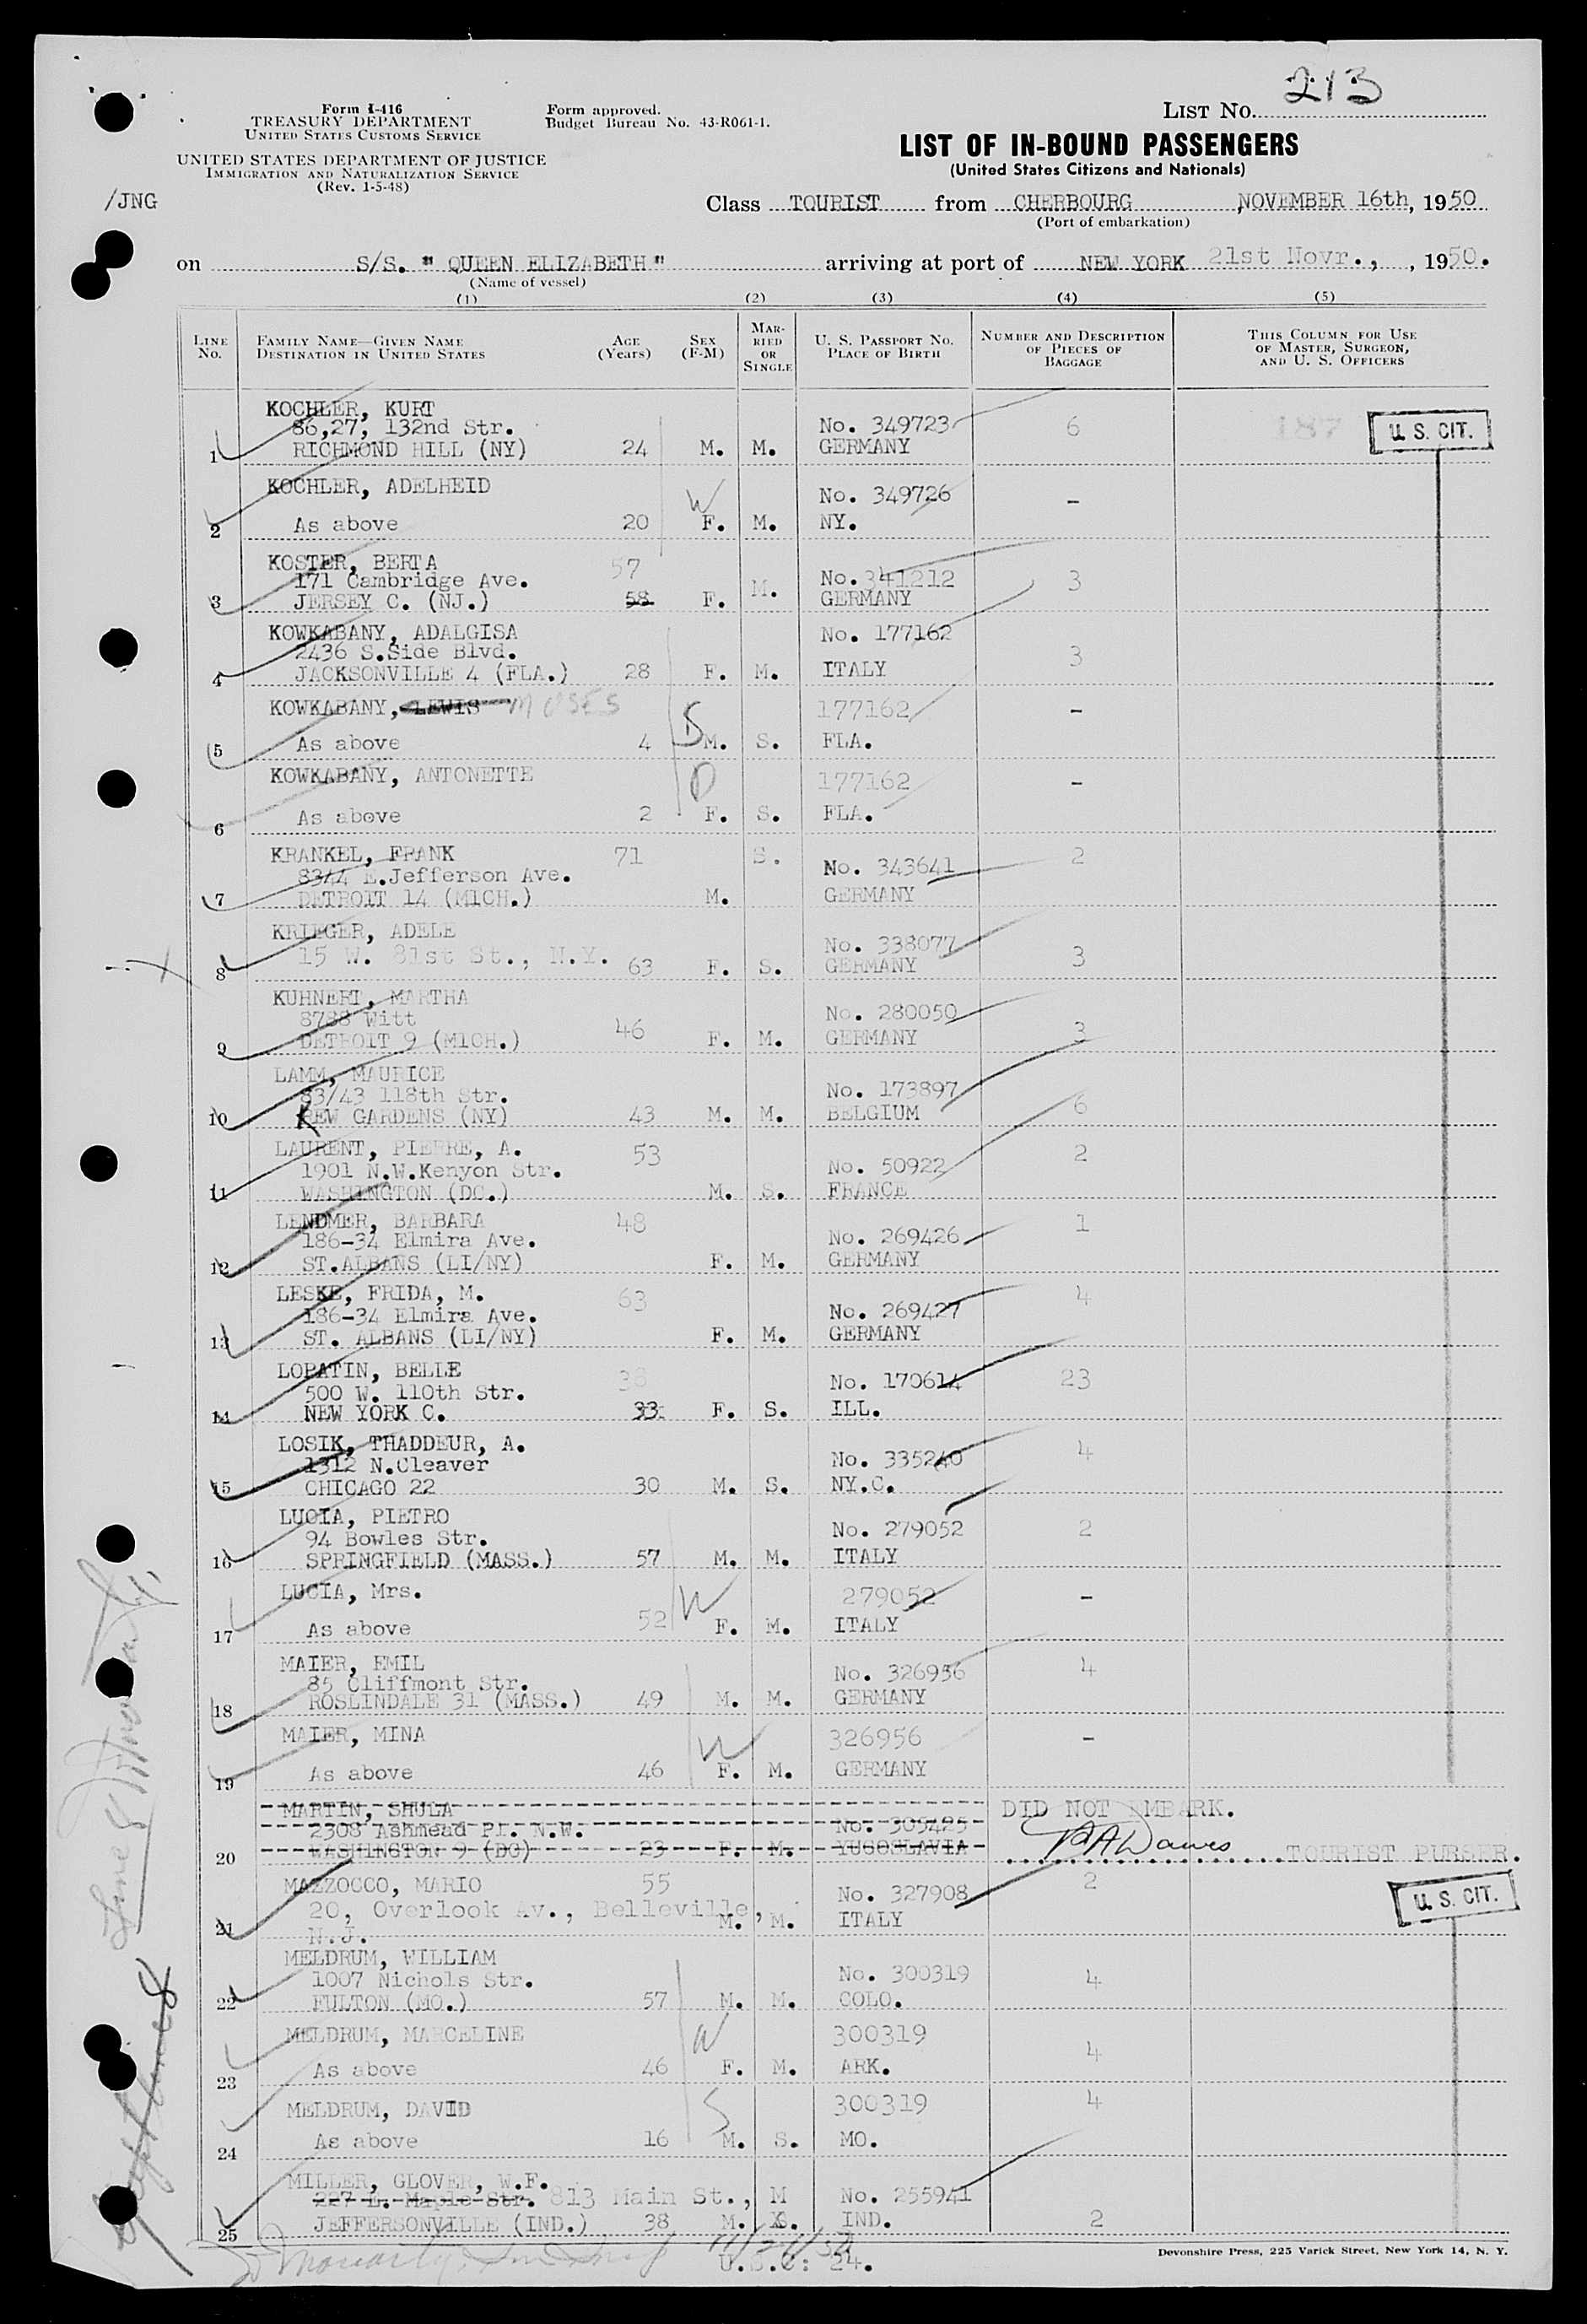 213
Form I-416
TREASURY DEPARTMENT
UNITED STATES CUSTOMS SERVICE
UNITED STATES DEPARTMENT OF JUSTICE
IMMIGRATION AND NATURALIZATION SERVICE
(Rev. 1-5-48)
Form approved.
Budget Bureau No. 43-R061-1.
LIST No.
LIST OF IN-BOUND PASSENGERS
(United States Citizens and Nationals)
/JNG
Class TOURIST from CHERBOURG, NOVEMBER 16th, 1950
(Port of embarkation)
on S/S. " QUEEN ELIZABETH " arriving at port of NEW YORK 21st Novr., , 1950.
(Name of vessel)
(1) (2) (3) (4) (5)
LINE No.
FAMILY NAME—GIVEN NAME
DESTINATION IN UNITED STATES
AGE (Years)
SEX (F-M)
MARRIED OR SINGLE
U. S. PASSPORT No.
PLACE OF BIRTH
NUMBER AND DESCRIPTION OF PIECES OF BAGGAGE
THIS COLUMN FOR USE OF MASTER, SURGEON, AND U. S. OFFICERS
KOCHLER, KURT
86,27, 132nd Str. No. 349723 6 187 U. S. CIT.
1 RICHMOND HILL (NY) 24 M. M. GERMANY
KOCHLER, ADELHEID W No. 349726 -
2 As above 20 F. M. NY.
KOSTER, BERTA 57
171 Cambridge Ave. M. No. 341212 3
3 JERSEY C. (NJ.) 58 F. GERMANY
KOWKABANY, ADALGISA No. 177162
2436 S.Side Blvd. 3
4 JACKSONVILLE 4 (FLA.) 28 F. M. ITALY
KOWKABANY, LEWIS MOSES S 177162 -
5 As above 4 M. S. FLA.
KOWKABANY, ANTONETTE D 177162 -
6 As above 2 F. S. FLA.
KRANKEL, FRANK 71 S. No. 343641 2
8344 E.Jefferson Ave.
7 DETROIT 14 (MICH.) M. GERMANY
KRIEGER, ADELE No. 338077
15 W. 81st St., N.Y. 3
8 63 F. S. GERMANY
KUHNERT, MARTHA No. 280050
8788 Witt 46 3
9 DETROIT 9 (MICH.) F. M. GERMANY
LAMM, MAURICE
83/43 118th Str. No. 173897 6
10 KEW GARDENS (NY) 43 M. M. BELGIUM
LAURENT, PIERRE, A. 53 2
1901 N.W.Kenyon Str. No. 50922
11 WASHINGTON (DC.) M. S. FRANCE
LENDMER, BARBARA 48 1
186-34 Elmira Ave. No. 269426
12 ST.ALBANS (LI/NY) F. M. GERMANY
LESKE, FRIDA, M. 63 4
186-34 Elmira Ave. No. 269427
13 ST. ALBANS (LI/NY) F. M. GERMANY
LOPATIN, BELLE 38
500 W. 110th Str. No. 170614 23
14 NEW YORK C. 33 F. S. ILL.
LOSIK, THADDEUR, A. 4
1312 N.Cleaver No. 335240
15 CHICAGO 22 30 M. S. NY.C.
LUCIA, PIETRO
94 Bowles Str. No. 279052 2
16 SPRINGFIELD (MASS.) 57 M. M. ITALY
LUCIA, Mrs. W 279052 -
17 As above 52 F. M. ITALY
MAIER, EMIL
85 Cliffmont Str. No. 326956 4
18 ROSLINDALE 31 (MASS.) 49 M. M. GERMANY
MAIER, MINA W 326956 -
19 As above 46 F. M. GERMANY
MARTIN, SHULA DID NOT EMBARK.
2308 Ashmead Pl. N.W. No. 309425
20 WASHINGTON 9 (DC) 23 F. M. YUGOSLAVIA TOURIST PURSER.
MAZZOCCO, MARIO 55 No. 327908 2 U. S. CIT.
20, Overlook Av., Belleville,
21 N.J. M. M. ITALY
MELDRUM, WILLIAM
1007 Nichols Str. No. 300319 4
22 FULTON (MO.) 57 M. M. COLO.
MELDRUM, MARCELINE W 300319
23 As above 46 F. M. ARK. 4
MELDRUM, DAVID S 300319 4
24 As above 16 M. S. MO.
MILLER, GLOVER, W.F.
227 E. Maple Str. 813 Main St., M No. 255941
25 JEFFERSONVILLE (IND.) 38 M. S. IND. 2
U.S.C: 24.
Devonshire Press, 225 Varick Street, New York 14, N. Y.